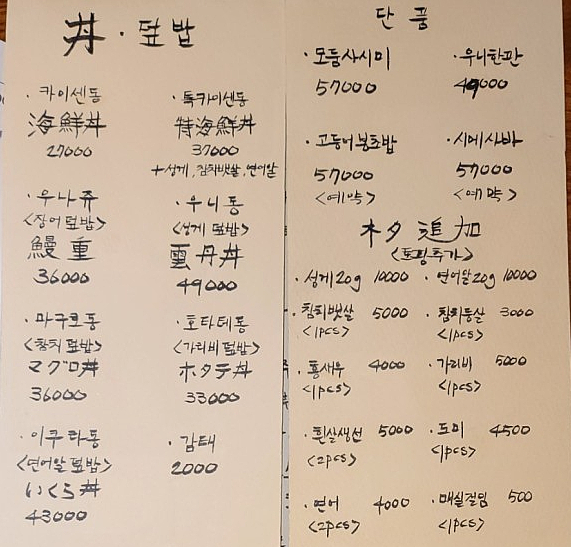 丼 · 덮밥
· 카이센동
海鮮丼
27000
· 특카이센동
特海鮮丼
37000
+성게, 참치뱃살, 연어알
· 우나쥬
<장어덮밥>
鰻重
36000
· 우니동
<성게 덮밥>
雲丹丼
49000
· 마구로동
<참치덮밥>
マグロ丼
36000
· 호타테동
<가리비덮밥>
ホタテ丼
33000
· 이쿠라동
<연어알덮밥>
いくら丼
43000
· 감태
2000
단 품
· 모둠사시미
57000
· 우니한판
49000
· 고등어봉초밥
57000
<예약>
· 시메사바
57000
<예약>
追加
<토핑추가>
· 성게 20g 10000
· 연어알 20g 10000
· 참치뱃살 5000
<1pcs>
· 참치등살 3000
<1pcs>
· 홍새우 4000
<1pcs>
· 가리비 5000
<1pcs>
· 흰살생선 5000
<2pcs>
· 도미 4500
<1pcs>
· 연어 4000
<2pcs>
· 매실절임 500
<1pcs>